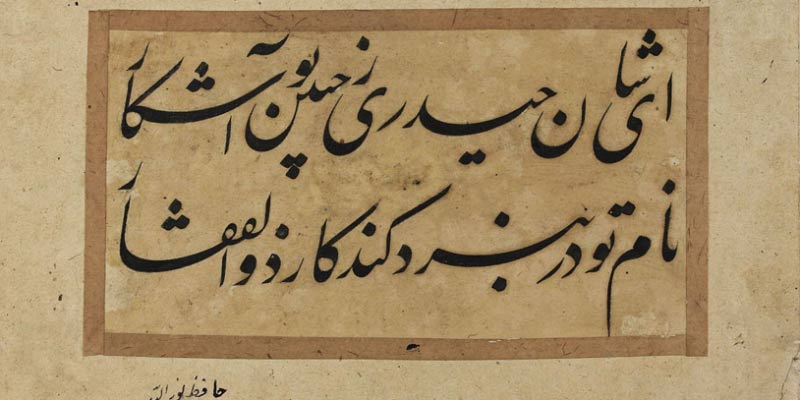 ای شان حیدری ز جبین تو آشکار
نام تو در نبرد کند کار ذوالفقار
حافظ نورالله